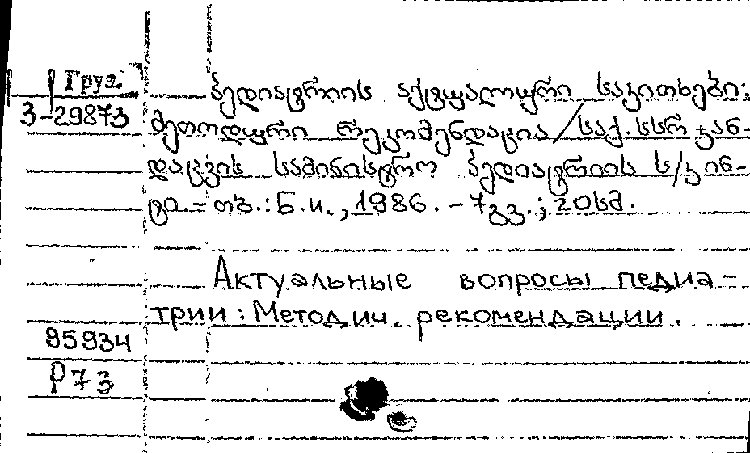 Груз.
3-29873
პედიატრიის აქტუალური საკითხები:
მეთოდური რეკომენდაცია / საქ. სსრ ჯან-
დაცვის სამინისტრო პედიატრიის ს/კ ინ-
ტი - თბ.: Б.и., 1986. - 7 გვ.; 20 სმ.
Актуальные вопросы педиа-
трии: Методич. рекомендации.
95934
Р73